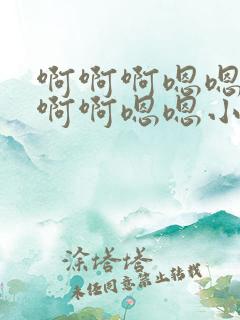 啊啊啊嗯嗯
啊啊嗯嗯小
涂塔塔
未经同意禁止转载